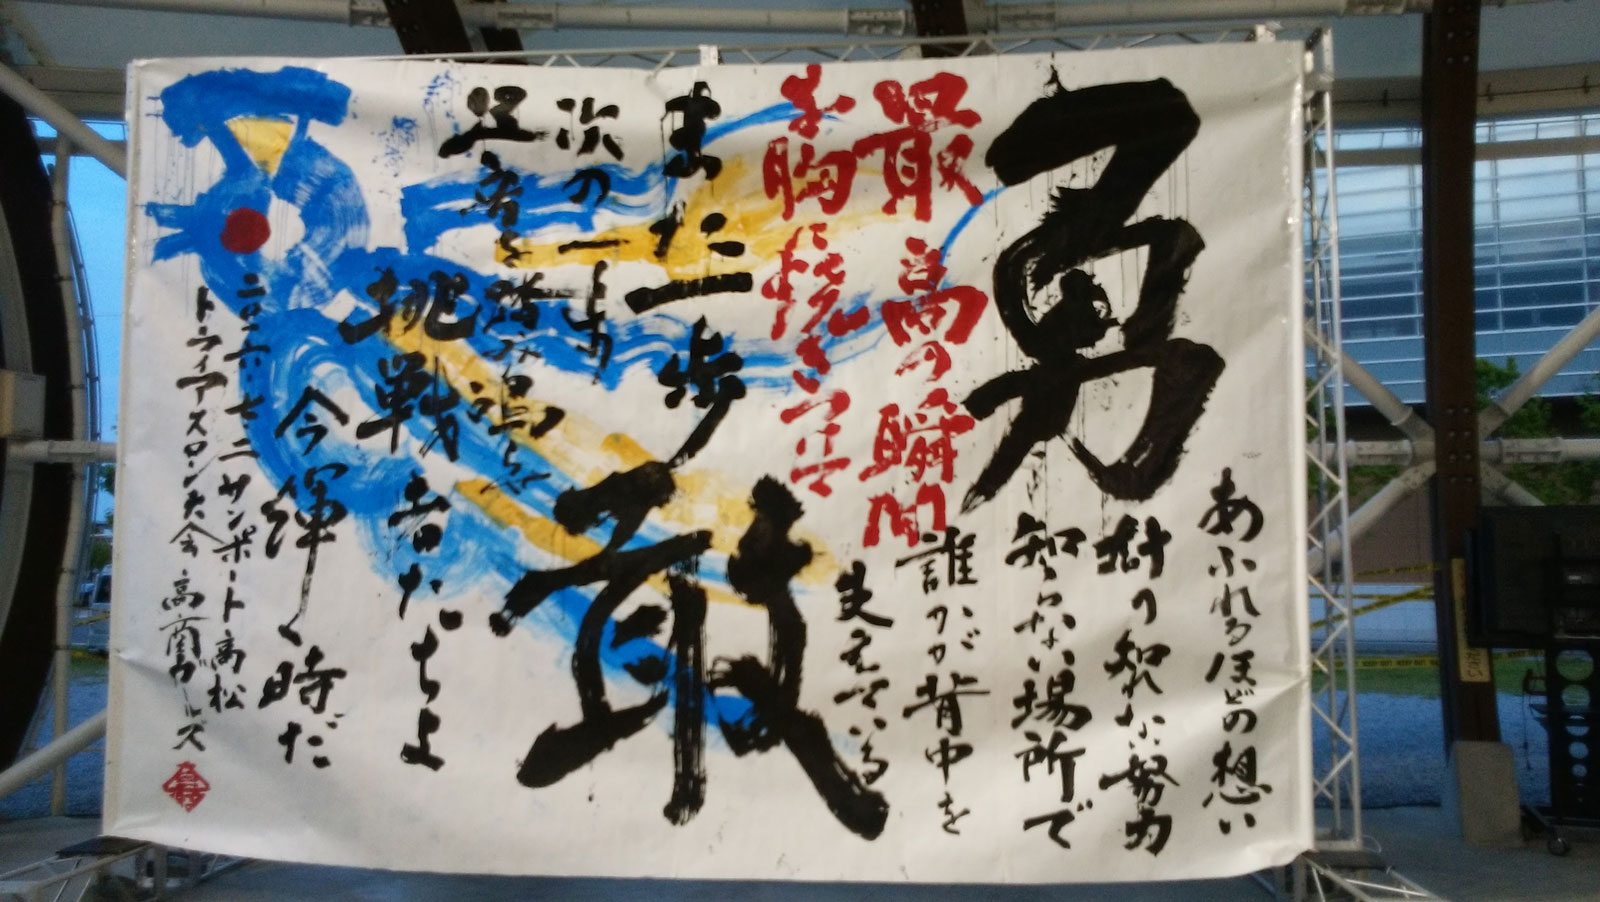 勇敢
あふれるほどの想い
計り知れない努力
知らない場所で
誰かが背中を
支えている
最高の瞬間
を胸に焼き
また一歩
次の一歩
足音を踏み鳴らせ
挑戦者たちよ
今輝く時だ
二〇一六・七・二 サンポート高松
トライアスロン大会 高商ガールズ